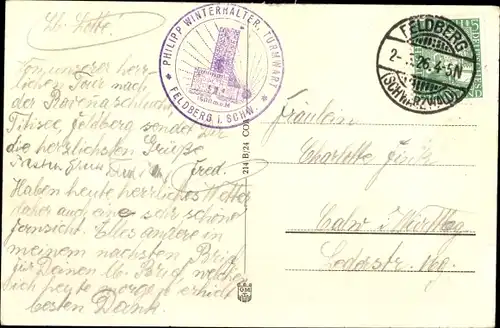 Lb. Lotte!
Von unserer herr-
lichen Tour nach
der Ravennaschlucht
Titisee, Feldberg sendet Dir
die herzlichsten Grüße
Fred.
Haben heute herrliches Wetter
daher auch eine sehr schöne
Fernsicht. Alles andere in
meinem nächsten Brief
für Deinen lb. Brief, welchen
ich heute morgen erhielt
besten Dank.
PHILIPP WINTERHALTER, TURMWART
FELDBERG I. SCHW.
FELDBERG
(SCHWARZWALD)
214 B/24
Fräulein
Charlotte
Calw Württbg
Lederstr.